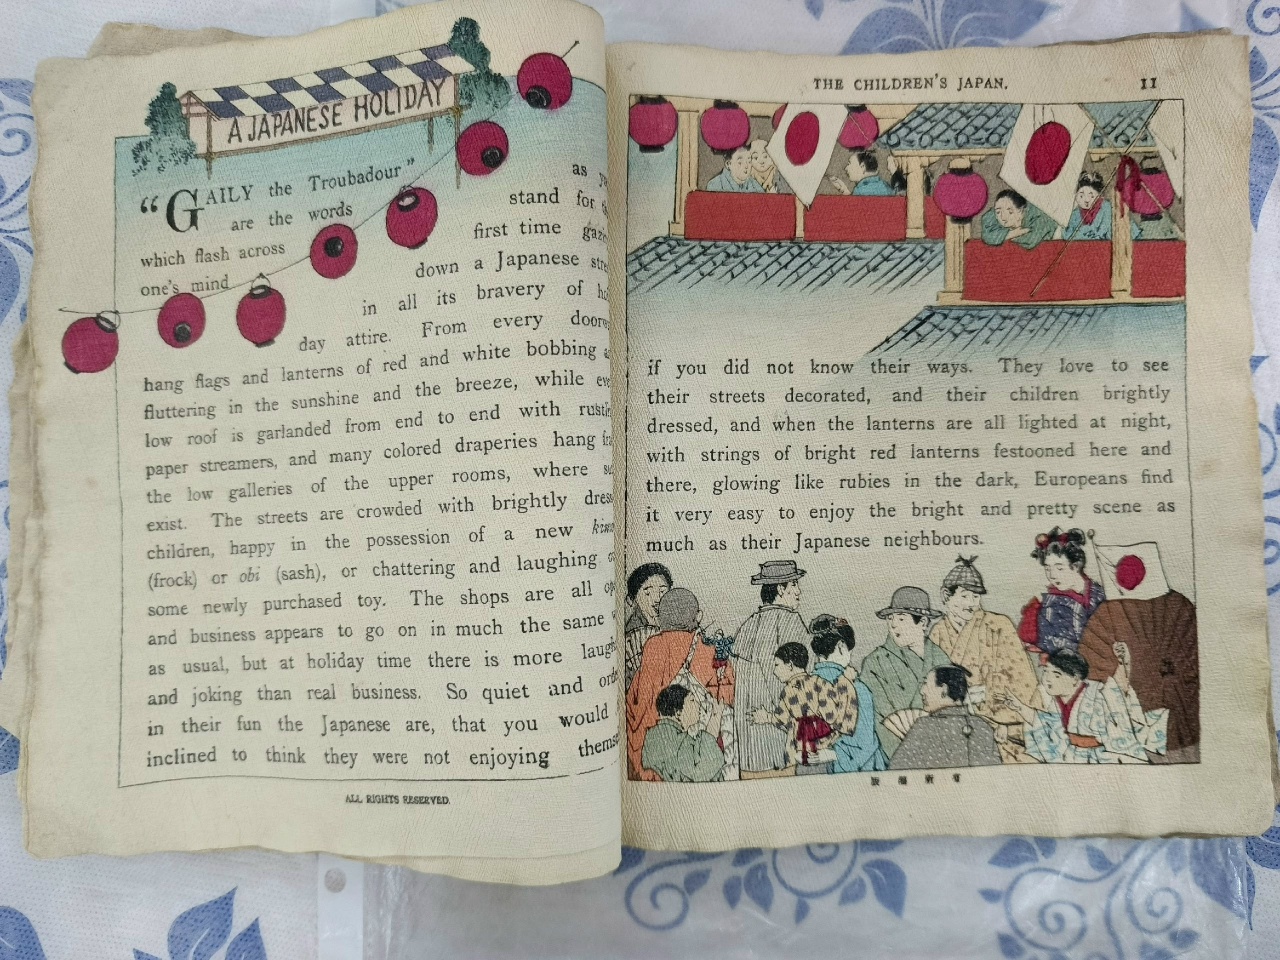 A JAPANESE HOLIDAY
"GAILY the Troubadour" as
are the words stand for
which flash across first time
one's mind down a Japanese
in all its bravery of
day attire. From every
hang flags and lanterns of red and white bobbing
fluttering in the sunshine and the breeze, while
low roof is garlanded from end to end with
paper streamers, and many colored draperies hang
the low galleries of the upper rooms, where
exist. The streets are crowded with brightly
children, happy in the possession of a new
(frock) or obi (sash), or chattering and laughing
some newly purchased toy. The shops are all
and business appears to go on in much the same
as usual, but at holiday time there is more
and joking than real business. So quiet and
in their fun the Japanese are, that you would
inclined to think they were not enjoying
ALL RIGHTS RESERVED.
THE CHILDREN'S JAPAN. 11
if you did not know their ways. They love to see
their streets decorated, and their children brightly
dressed, and when the lanterns are all lighted at night,
with strings of bright red lanterns festooned here and
there, glowing like rubies in the dark, Europeans find
it very easy to enjoy the bright and pretty scene as
much as their Japanese neighbours.